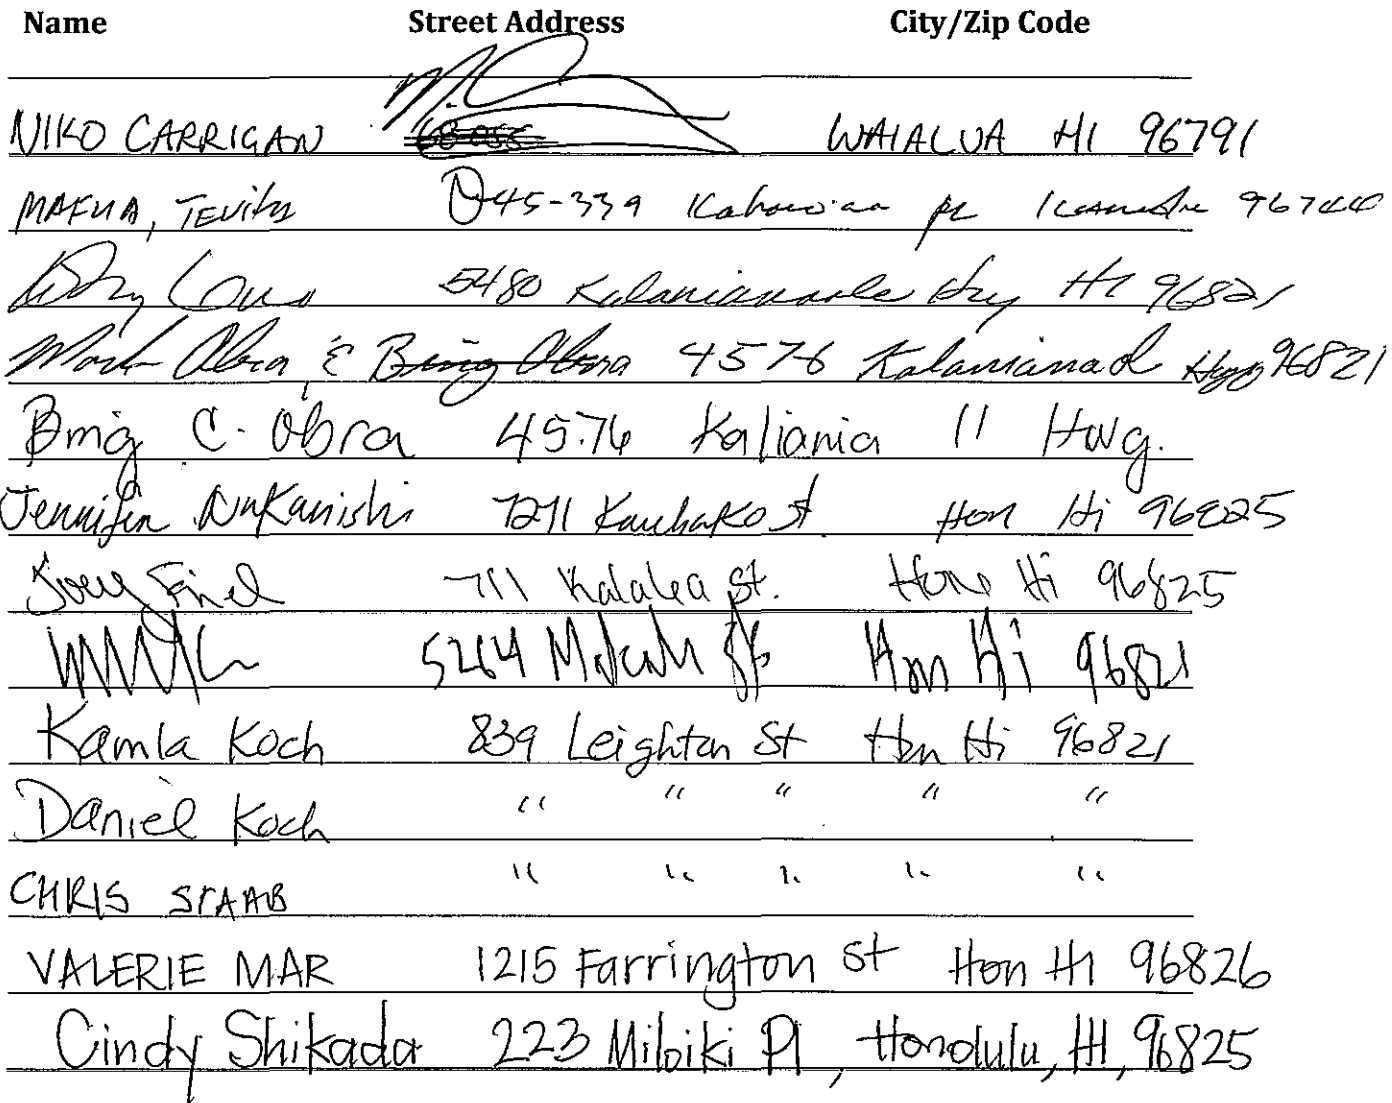 Name Street Address City/Zip Code
NIKO CARRIGAN WAIALUA HI 96791
MAFUA, TEVITA 45-339 pl 96744
5480 Kalanianaole Hwy HI 96821
Mark Obra & Bing Obra 4576 Kalanianaol Hwy 96821
Bing C. Obra 4576 Kaliania 11 Hwg.
Jennifer Nakanishi 7211 Kauhako St Hon Hi 96825
Joey 711 Kalalea St. Hono Hi 96825
5264 St Hon Hi 96821
Kamla Koch 839 Leighton St Hon Hi 96821
Daniel Koch " " " " "
CHRIS STAAB " " " " "
VALERIE MAR 1215 Farrington St Hon HI 96826
Cindy Shikada 223 Miloiki Pl, Honolulu, HI, 96825